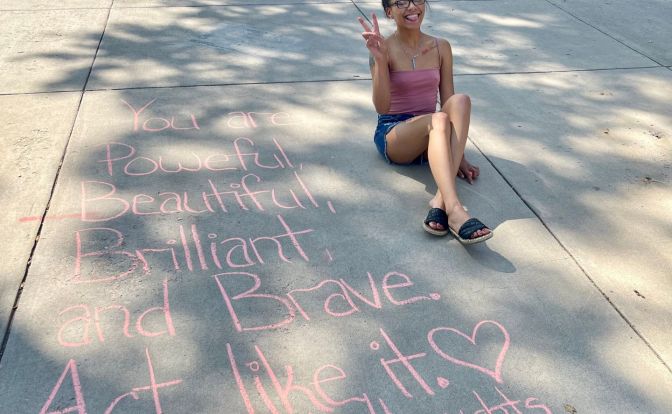 You are
Powerful,
Beautiful,
Brilliant,
and Brave.
Act like it. ♡